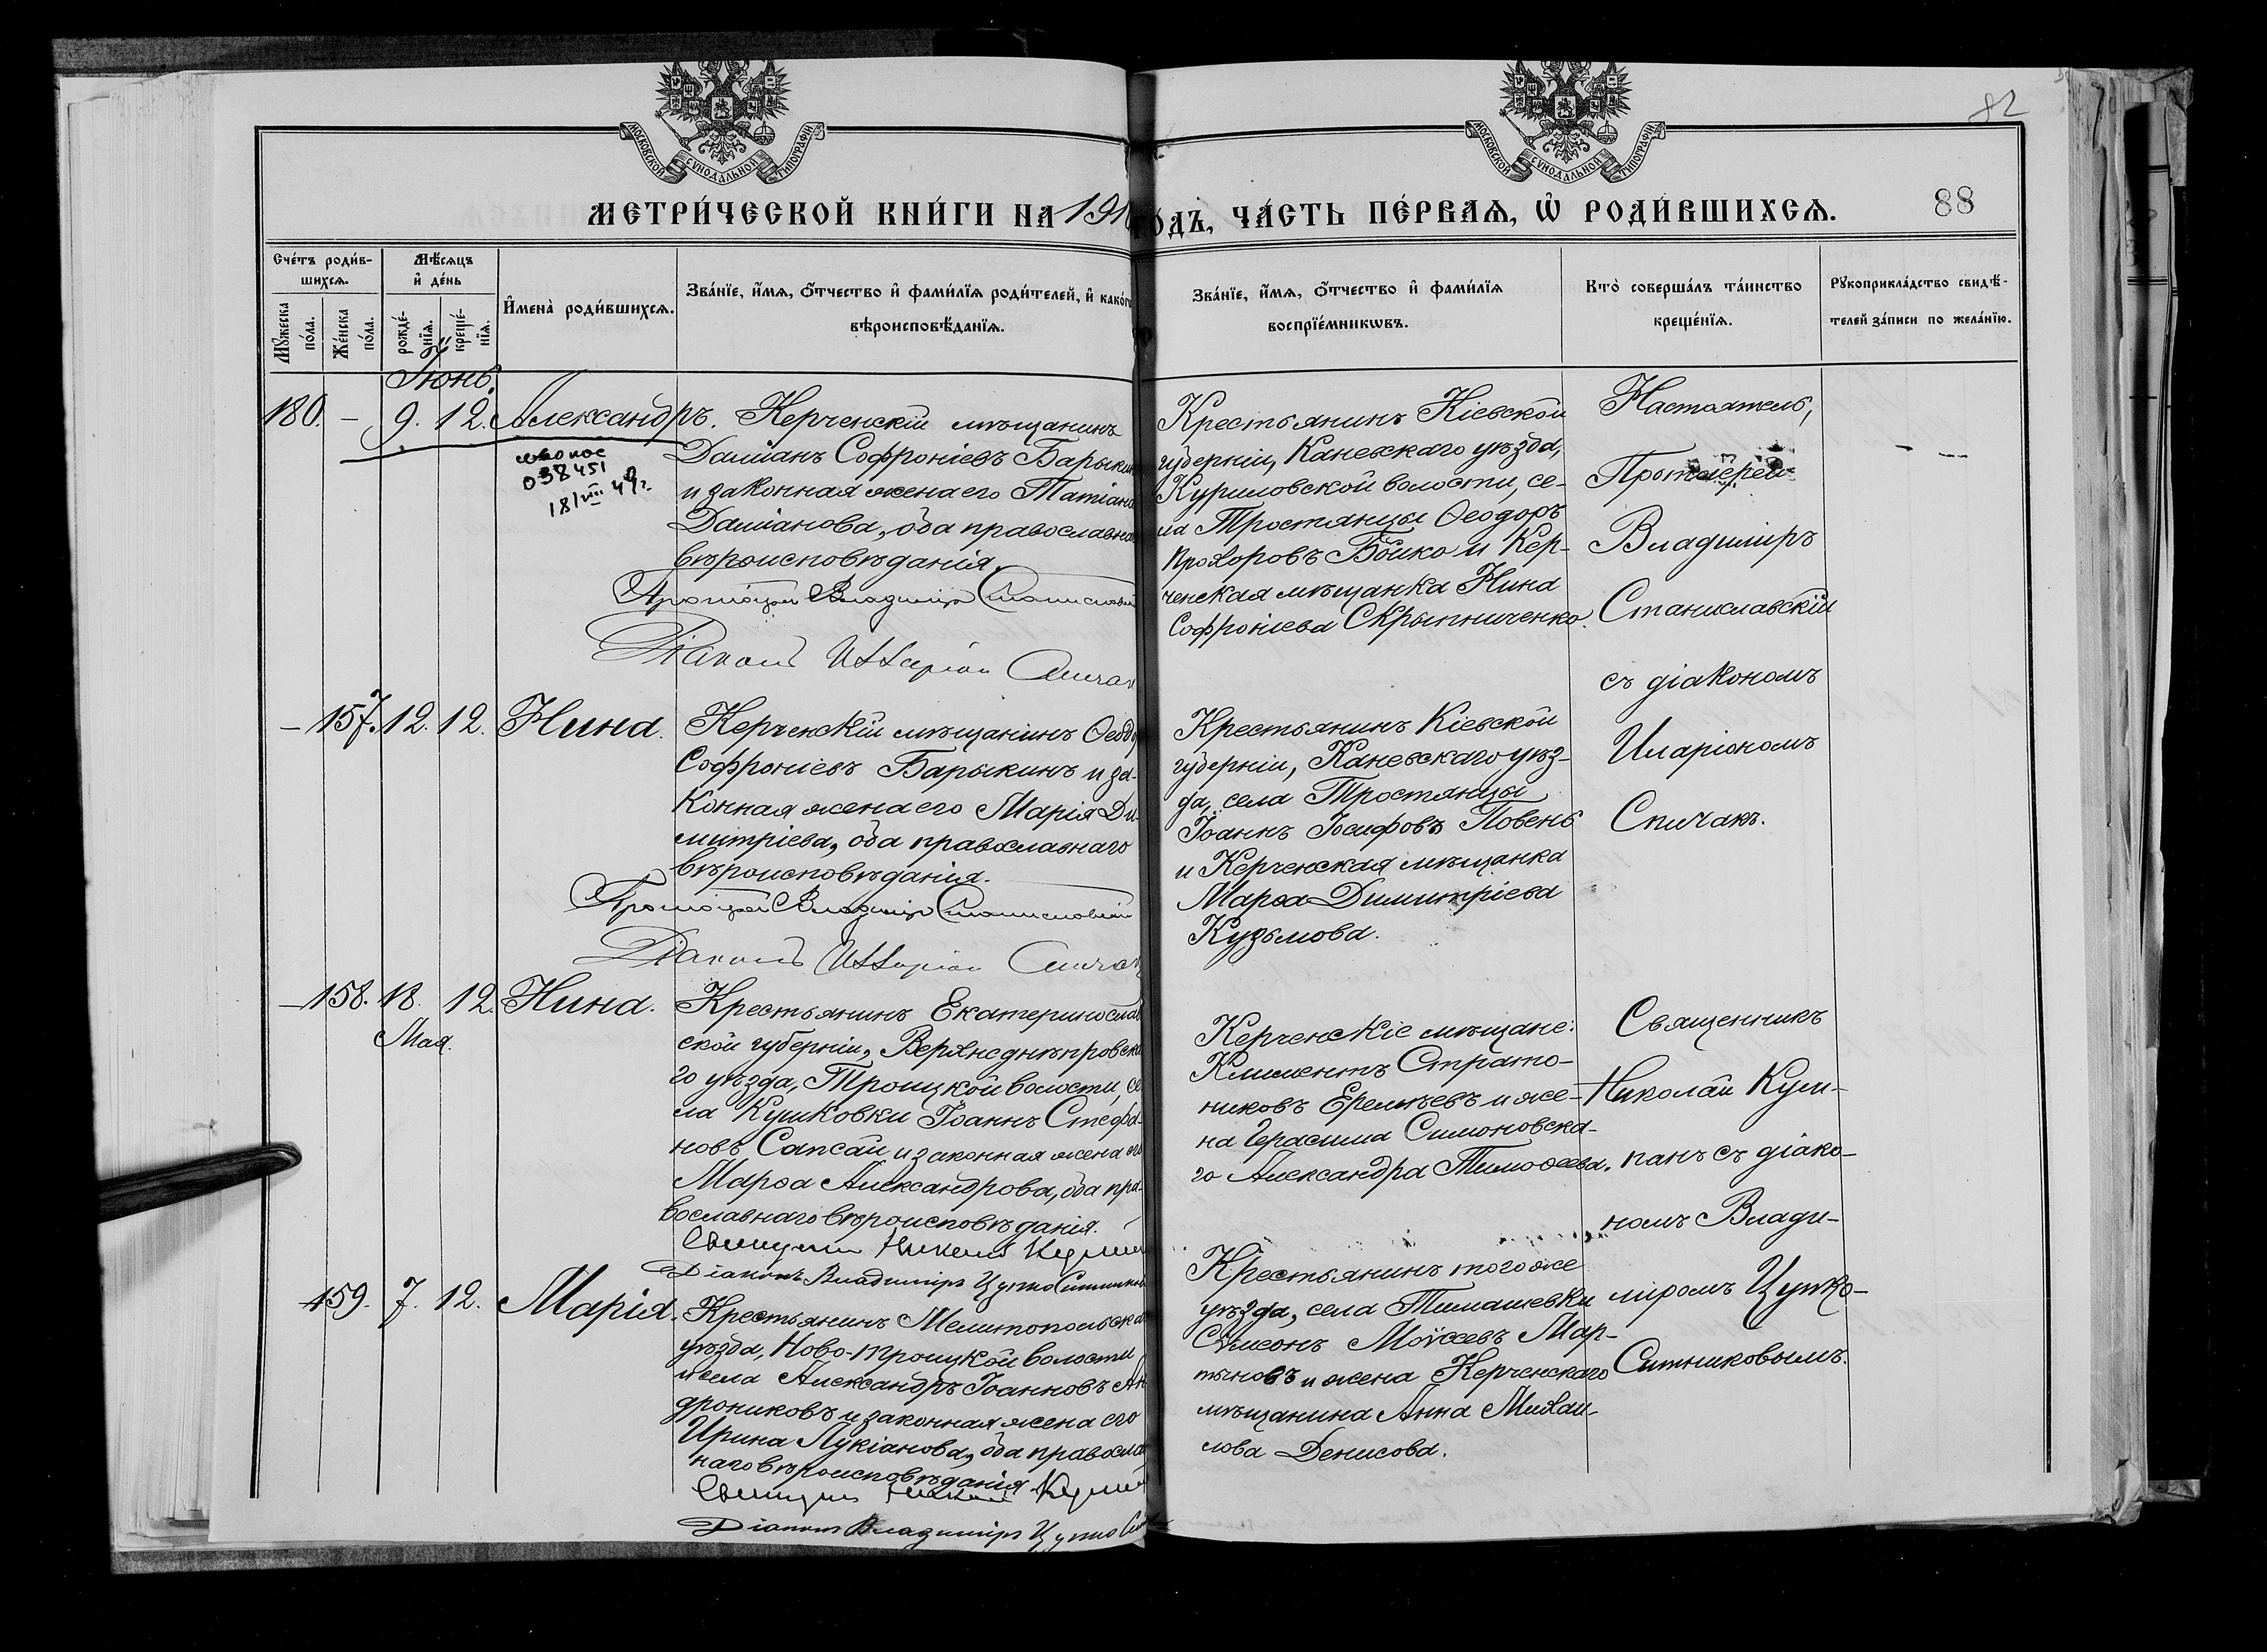 МОСКОВСКОЙ СѴНОДАЛЬНОЙ ТИПОГРАФІИ
МОСКОВСКОЙ СѴНОДАЛЬНОЙ ТИПОГРАФІИ
82
МЕТРИ́ЧЕСКОЙ КНИ́ГИ НА 191
ГО́ДЪ, ЧА́СТЬ ПЕ́РВАѦ, Ѡ҆ РОДИ́ВШИХСѦ.
88
Сче́тъ роди́в-
шихсѧ.
Мꙋ́жеска по́ла.
Же́нска по́ла.
Мѣ́сѧцъ
и҆ де́нь
рожде́-
нїѧ.
креще́-
нїѧ.
И҆мена̀ роди́вшихсѧ.
Зва́нїе, и҆́мѧ, ѻ҆́тчество и҆ фами́лїѧ роди́телей, и҆ како́гѡ
вѣроисповѣ́данїѧ.
Зва́нїе, и҆́мѧ, ѻ҆́тчество и҆ фами́лїѧ
воспрїе́мникѡвъ.
Кто̀ соверша́лъ та́инство
креще́нїѧ.
Рꙋкоприкла́дство свидѣ́-
телей за́писи по жела́нїю.
Іюнь.
180. – 9. 12. Александръ.
038451
18/VIII 49 г.
Керченскій мѣщанинъ
Даміанъ Софроніевъ Барыкинъ
и законная жена его Татіана
Даміанова, оба православнаго
вѣроисповѣданія.
Протоіерей Владиміръ Станиславскій
Діаконъ Иларіон Спичак
Крестьянинъ Кіевской
губерніи, Каневскаго уѣзда,
Куриловской волости, се-
ла Тростянцы Ѳеодоръ
Прохоровъ Бойко и Кер-
ченская мѣщанка Нина
Софроніева Скрыпниченко.
Настоятель,
Протоіерей
Владиміръ
Станиславскій
съ діакономъ
Иларіономъ
Спичакъ.
– 157. 12. 12. Нина.
Керченскій мѣщанинъ Ѳеодоръ
Софроніевъ Барыкинъ и за-
конная жена его Марія Ди-
митріева, оба православнаго
вѣроисповѣданія.
Протоіерей Владиміръ Станиславскій
Діаконъ Иларіон Спичак
Крестьянинъ Кіевской
губерніи, Каневскаго уѣз-
да, села Тростянцы
Іоаннъ Іосифовъ Повень
и Керченская мѣщанка
Марѳа Димитріева
Кузьмова.
– 158. 18. 12. Нина.
Мая.
Крестьянинъ Екатеринослав-
ской губерніи, Верхнеднѣпровска-
го уѣзда, Троицкой волости, се-
ла Кушковки Іоаннъ Стефа-
новъ Сапсай и законная жена его
Марѳа Александрова, оба пра-
вославнаго вѣроисповѣданія.
Священникъ Николай Кумпан
Діаконъ Владиміръ Цупко Ситников
Керченскіе мѣщане:
Климентъ Страто-
никовъ Еремѣевъ и же-
на Герасима Симоновска-
го Александра Тимоѳеева.
Священникъ
Николай Кум-
панъ съ діако-
номъ Влади-
міромъ Цупко-
Ситниковымъ.
159. 7. 12. Марія.
Крестьянинъ Мелитопольскаго
уѣзда, Ново-Троицкой волости
и села Александръ Іоанновъ Ан-
дрониковъ и законная жена его
Ирина Лукіанова, оба православ-
наго вѣроисповѣданія
Священникъ Николай Кумпан
Діаконъ Владиміръ Цупко
Крестьянинъ того же
уѣзда, села Тимашевки
Сѵмеонъ Моѵсеевъ Мар-
тыновъ и жена Керченскаго
мѣщанина Анна Михаи-
лова Денисова.